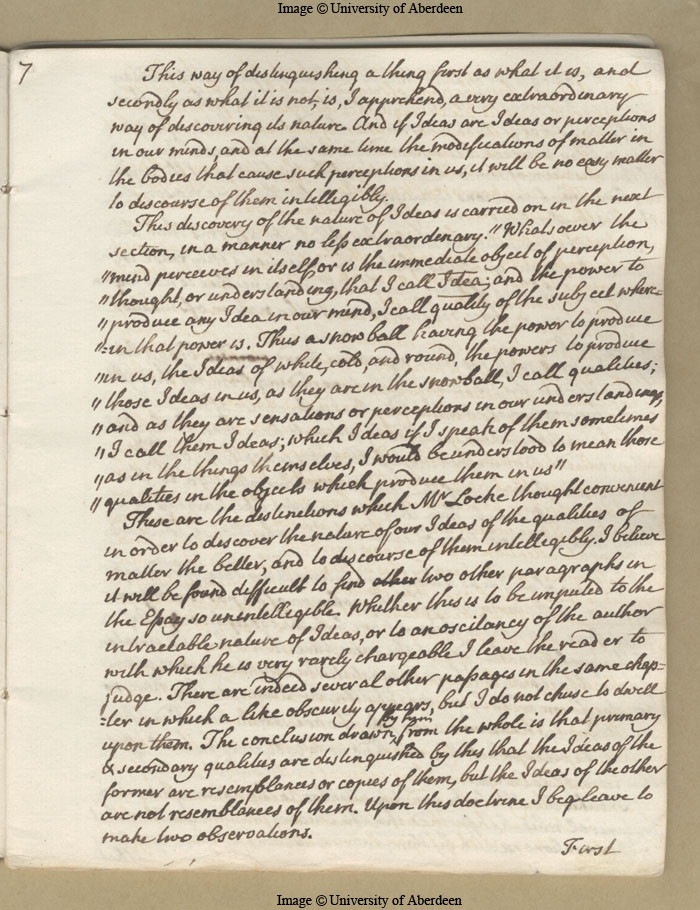 Image © University of Aberdeen
7
This way of distinguishing a thing first as what it is, and
secondly as what it is not, is, I apprehend, a very extraordinary
way of discovering its nature. And if Ideas are Ideas or perceptions
in our minds, and at the same time the modifications of matter in
the bodies that cause such perceptions in us, it will be no easy matter
to discourse of them intelligibly.
This discovery of the nature of Ideas is carried on in the next
section, in a manner no less extraordinary. "Whatsoever the
"mind perceives in itself or is the immediate object of perception,
"thought, or understanding, that I call Idea; and the power to
"produce any Idea in our mind, I call quality of the subject where=
"=in that power is. Thus a snowball having the power to produce
"in us, the Ideas of white, cold, and round, the powers to produce
"those Ideas in us, as they are in the snowball, I call qualities;
"and as they are sensations or perceptions in our understandings,
"I call them Ideas; which Ideas if I speak of them sometimes
"as in the things themselves, I would be understood to mean those
"qualities in the objects which produce them in us"
These are the distinctions which Mr Locke thought convenient
in order to discover the nature of our Ideas of the qualities of
matter the better, and to discourse of them intelligibly. I believe
it will be found difficult to find other two other paragraphs in
the Essay so unintelligible. Whether this is to be imputed to the
intractable nature of Ideas, or to an oscitancy of the author
with which he is very rarely chargeable I leave the reader to
judge. There are indeed several other passages in the same chap=
=ter in which a like obscurity appears, but I do not chuse to dwell
upon them. The conclusion drawn by him from the whole is that primary
& secondary qualities are distinguished by this that the Ideas of the
former are resemblances or copies of them, but the Ideas of the other
are not resemblances of them. Upon this doctrine I beg leave to
make two observations.
First
Image © University of Aberdeen